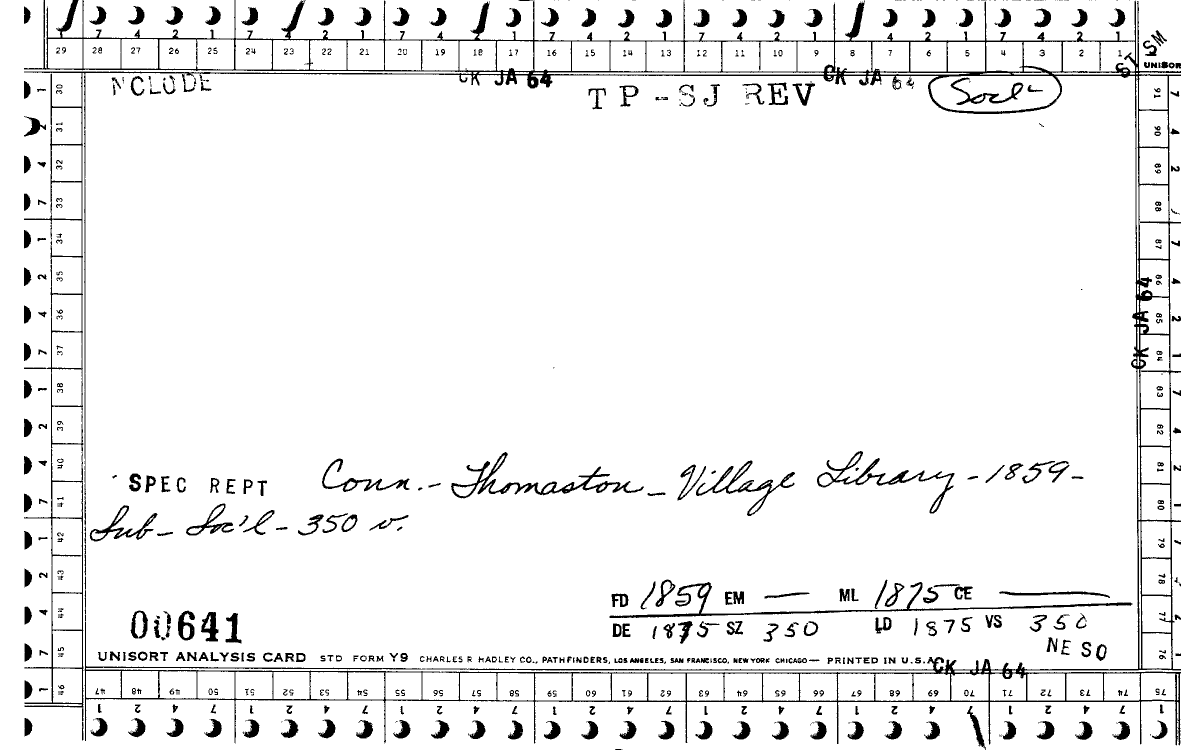 7 4 2 1 7 4 2 1 7 4 2 1 7 4 2 1 7 4 2 1 7 4 2 1 7 4 2 1
29 28 27 26 25 24 23 22 21 20 19 18 17 16 15 14 13 12 11 10 9 8 7 6 5 4 3 2 1
SM
ST
UNISOR
NCLUDE
CK JA 64
CK JA 64
TP-SJ REV
Socl
30 31 32 33 34 35 36 37 38 39 40 41 42 43 44 45 46
1 2 4 7 1 2 4 7 1 2 4 7 1 2 4 7 1
91 90 89 88 87 86 85 84 83 82 81 80 79 78 77 76
CK JA 64
SPEC REPT Conn.- Thomaston - Village Library - 1859 -
Sub - Soc'l - 350 v.
FD 1859 EM — ML 1875 CE —
00641
DE 1875 SZ 350 LD 1875 VS 350
NE SO
UNISORT ANALYSIS CARD STD FORM Y9 CHARLES R HADLEY CO., PATHFINDERS, LOS ANGELES, SAN FRANCISCO, NEW YORK CHICAGO— PRINTED IN U.S.A.
CK JA 64
47 48 49 50 51 52 53 54 55 56 57 58 59 60 61 62 63 64 65 66 67 68 69 70 71 72 73 74 75
1 2 4 7 1 2 4 7 1 2 4 7 1 2 4 7 1 2 4 7 1 2 4 7 1 2 4 7 1